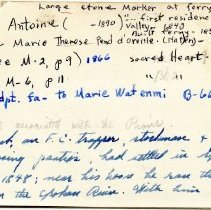 Large stone Marker at ferry
Antoine ( -1890) "- first residence
Valley - 1849
Built ferry - 185
Marie Therese Pend d'oreille - (Halten)
ee M-2, p9) 1866 Sacred Heart -
M-6, p 11
dpt. fa- to Marie Watenmi B-66
associated with the
, an F.C. trapper, stockman &
ning parties, had settled in
1848; near his house he ran the
the Spokane River. With him